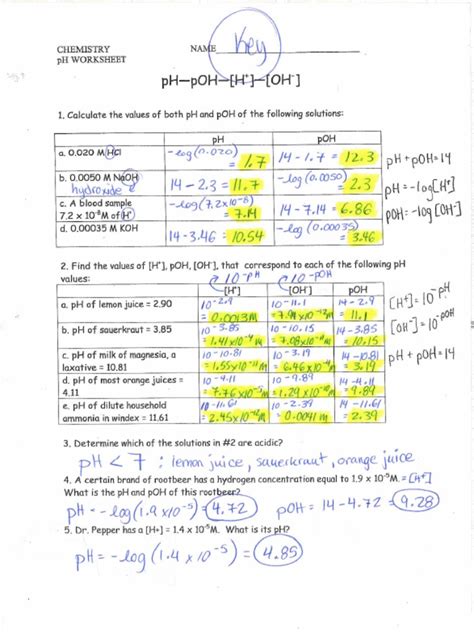 CHEMISTRY NAME Key
pH WORKSHEET
pH—pOH—[H⁺]—[OH⁻]
1. Calculate the values of both pH and pOH of the following solutions:
pH pOH
a. 0.020 M HCl -log(0.020) = 1.7 14 - 1.7 = 12.3
pH + pOH = 14
b. 0.0050 M NaOH 14 - 2.3 = 11.7 -log (0.0050) = 2.3
hydroxide
pH = -log[H⁺]
c. A blood sample -log(7.2 x 10⁻⁸)
7.2 x 10⁻⁸M of [H⁺] = 7.14 14 - 7.14 = 6.86
pOH = -log [OH⁻]
d. 0.00035 M KOH 14 - 3.46 = 10.54 -log (0.00035) = 3.46
2. Find the values of [H⁺], pOH, [OH⁻], that correspond to each of the following pH
values:
10^-pH 10^-pOH
[H⁺] [OH⁻] pOH
a. pH of lemon juice = 2.90 10^-2.9 = 0.0013M 10^-11.1 = 7.94 x10⁻¹²M 14 - 2.9 = 11.1
[H⁺] = 10^-pH
b. pH of sauerkraut = 3.85 10^-3.85 = 1.41 x10⁻⁴M 10^-10.15 = 7.08x10⁻¹¹M 14 - 3.85 = 10.15
[OH⁻] = 10^-pOH
c. pH of milk of magnesia, a 10^-10.81 10^-3.19 14 - 10.81
laxative = 10.81 = 1.55x10⁻¹¹M = 6.46 x10⁻⁴M = 3.19
pH + pOH = 14
d. pH of most orange juices = 10^-4.11 10^-9.89 14 - 4.11
4.11 = 7.76 x10⁻⁵M = 1.29 x10⁻¹⁰M = 9.89
e. pH of dilute household 10^-11.61 10^-2.39 14 - 11.61
ammonia in windex = 11.61 = 2.45x10⁻¹²M = 0.0041 M = 2.39
3. Determine which of the solutions in #2 are acidic?
pH < 7 : lemon juice, sauerkraut, orange juice
4. A certain brand of rootbeer has a hydrogen concentration equal to 1.9 x 10⁻⁵M. = [H⁺]
What is the pH and pOH of this rootbeer?
pH = -log (1.9 x10⁻⁵) = 4.72 pOH = 14 - 4.72 = 9.28
5. Dr. Pepper has a [H+] = 1.4 x 10⁻⁵M. What is its pH?
pH = -log (1.4 x 10⁻⁵) = 4.85